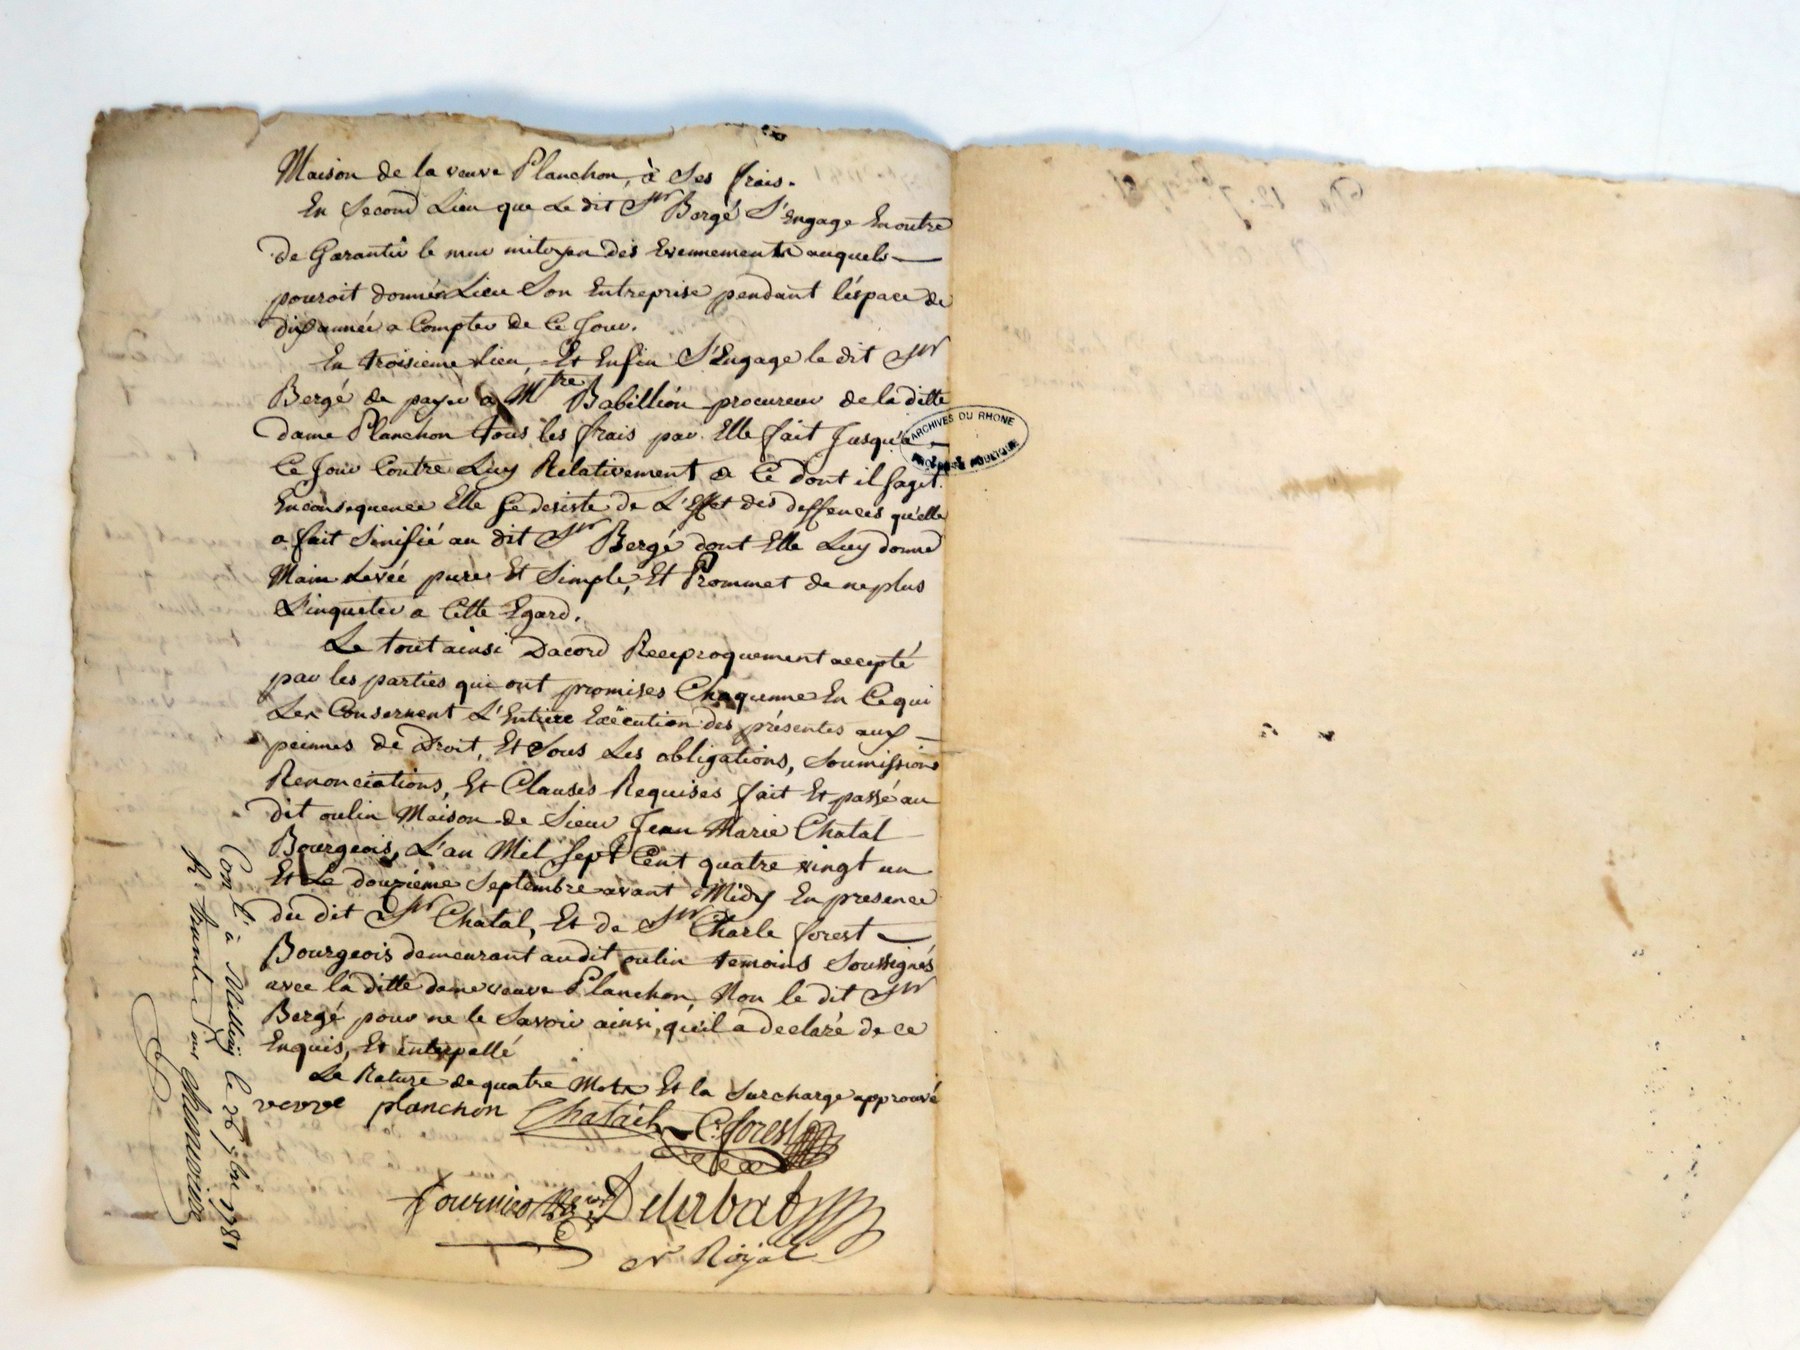 Maison de la veuve Planchon, à Ses frais.
En Second Lieu que Le dit Sr Bergé S'engage En outre
de Garantir le mur mitoyen des Evennements auquels
pouroit donner Lieu Son Entreprise pendant l'éspace de
dix année a Compter de Ce Jour.
En troisieme lieu, Et Enfin S'Engage le dit Sr
Bergé de payer a Mtre Babillion procureur de la ditte
dame Planchon tous les frais par Elle fait Jusqu'a
Ce Jour Contre Luy Relativement a Ce dont il sagit.
En consequence Elle se desiste de L'Effet des deffences qu'elle
a fait Sinifié au dit Sr Bergé dont Elle Luy donne
Main Levée pure Et Simple, Et Prommet de ne plus
L'inqueter a Cette Egard.
Le tout ainsi Dacord Reciproquement accepté
par les parties qui ont promises Chaqunne En Ce qui
Les Consernent L'Entiere Exécution des présentes aux
peinnes de Droit, Et Sous Les obligations, Soumissions
Renonciations, Et Clauses Requises fait Et passé au
dit oulin Maison de Sieur Jean Marie Chatal
Bourgeois, L'an Mil Sept Cent quatre vingt un
Et Le douzième Septembre avant Midy En presence
du dit Sr Chatal, Et de Sr Charle forest
Bourgeois demeurant audit oulin temoins Soussignés
avec la ditte dame veuve Planchon, Non le dit Sr
Bergé pour ne le Savoir ainsi, qu'il a declaré de ce
Enquis, Et interpellé
Le Rature de quatre Mots Et la Surcharge approuvé
veuve planchon Chatail C. forest
Delarbat
Nre Royal
Con lé à le 26 7bre 1781
ARCHIVES DU RHONE
Du 12. 7bre 1781